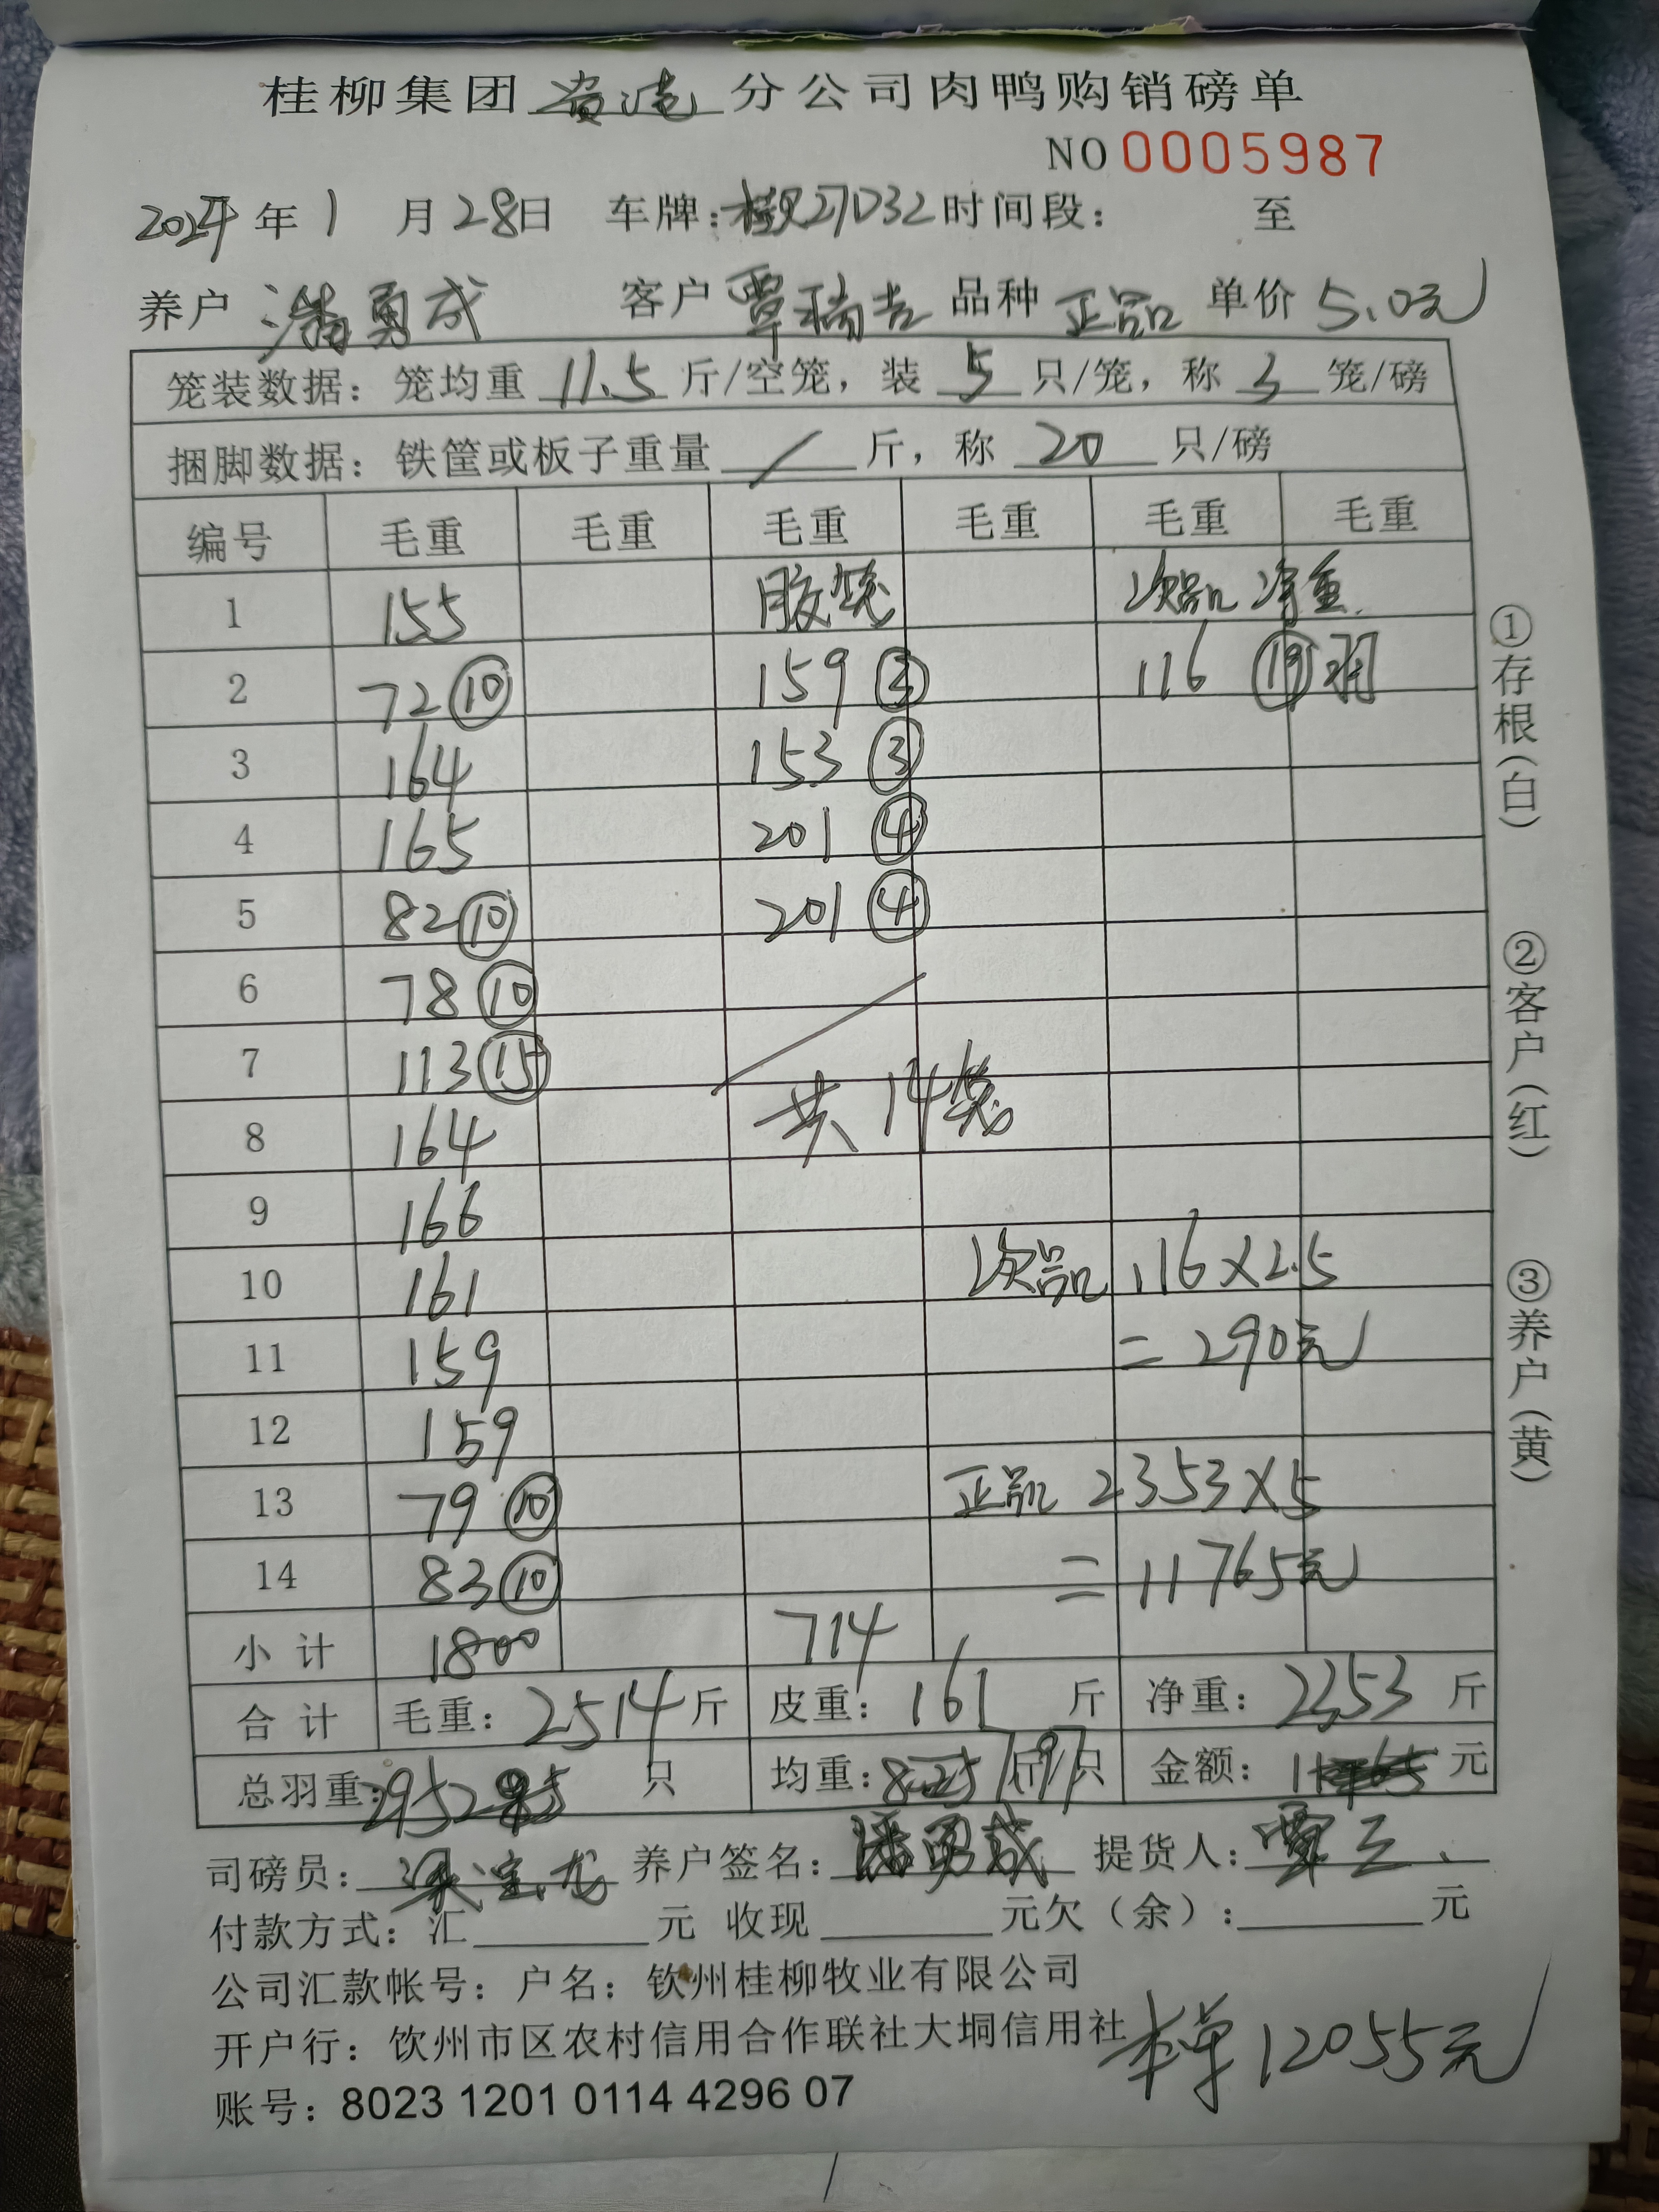 桂柳集团 分公司肉鸭购销磅单
NO 0005987
2024年 1 月 28日 车牌: 27D32 时间段: 至
养户 潘勇成 客户 覃瑞吉 品种 正品 单价 5.0元
笼装数据: 笼均重 11.5 斤/空笼, 装 5 只/笼, 称 3 笼/磅
捆脚数据: 铁筐或板子重量 / 斤, 称 20 只/磅
编号 毛重 毛重 毛重 毛重 毛重 毛重
1 155 胶笼 次品 净重
2 72 ⑩ 159 116 ⑲ 羽
3 164 153 ③
4 165 201 ④
5 82 ⑩ 201 ④
6 78 ⑩
7 113 ⑮
8 164 共 14笼
9 166
10 161 次品 116×2.5
11 159 =290元
12 159
13 79 ⑩ 正品 2353×5
14 83 ⑩ =11765元
小计 1800 714
合计 毛重: 2514 斤 皮重: 161 斤 净重: 2353 斤
总羽重: 295 只 均重: 斤/只 金额: 元
司磅员: 养户签名: 潘勇成 提货人: 覃三
付款方式: 汇 元 收现 元欠(余): 元
公司汇款帐号: 户名: 钦州桂柳牧业有限公司
开户行: 钦州市区农村信用合作联社大垌信用社
本单 12055元
账号: 8023 1201 0114 4296 07
①存根(白)
②客户(红)
③养户(黄)